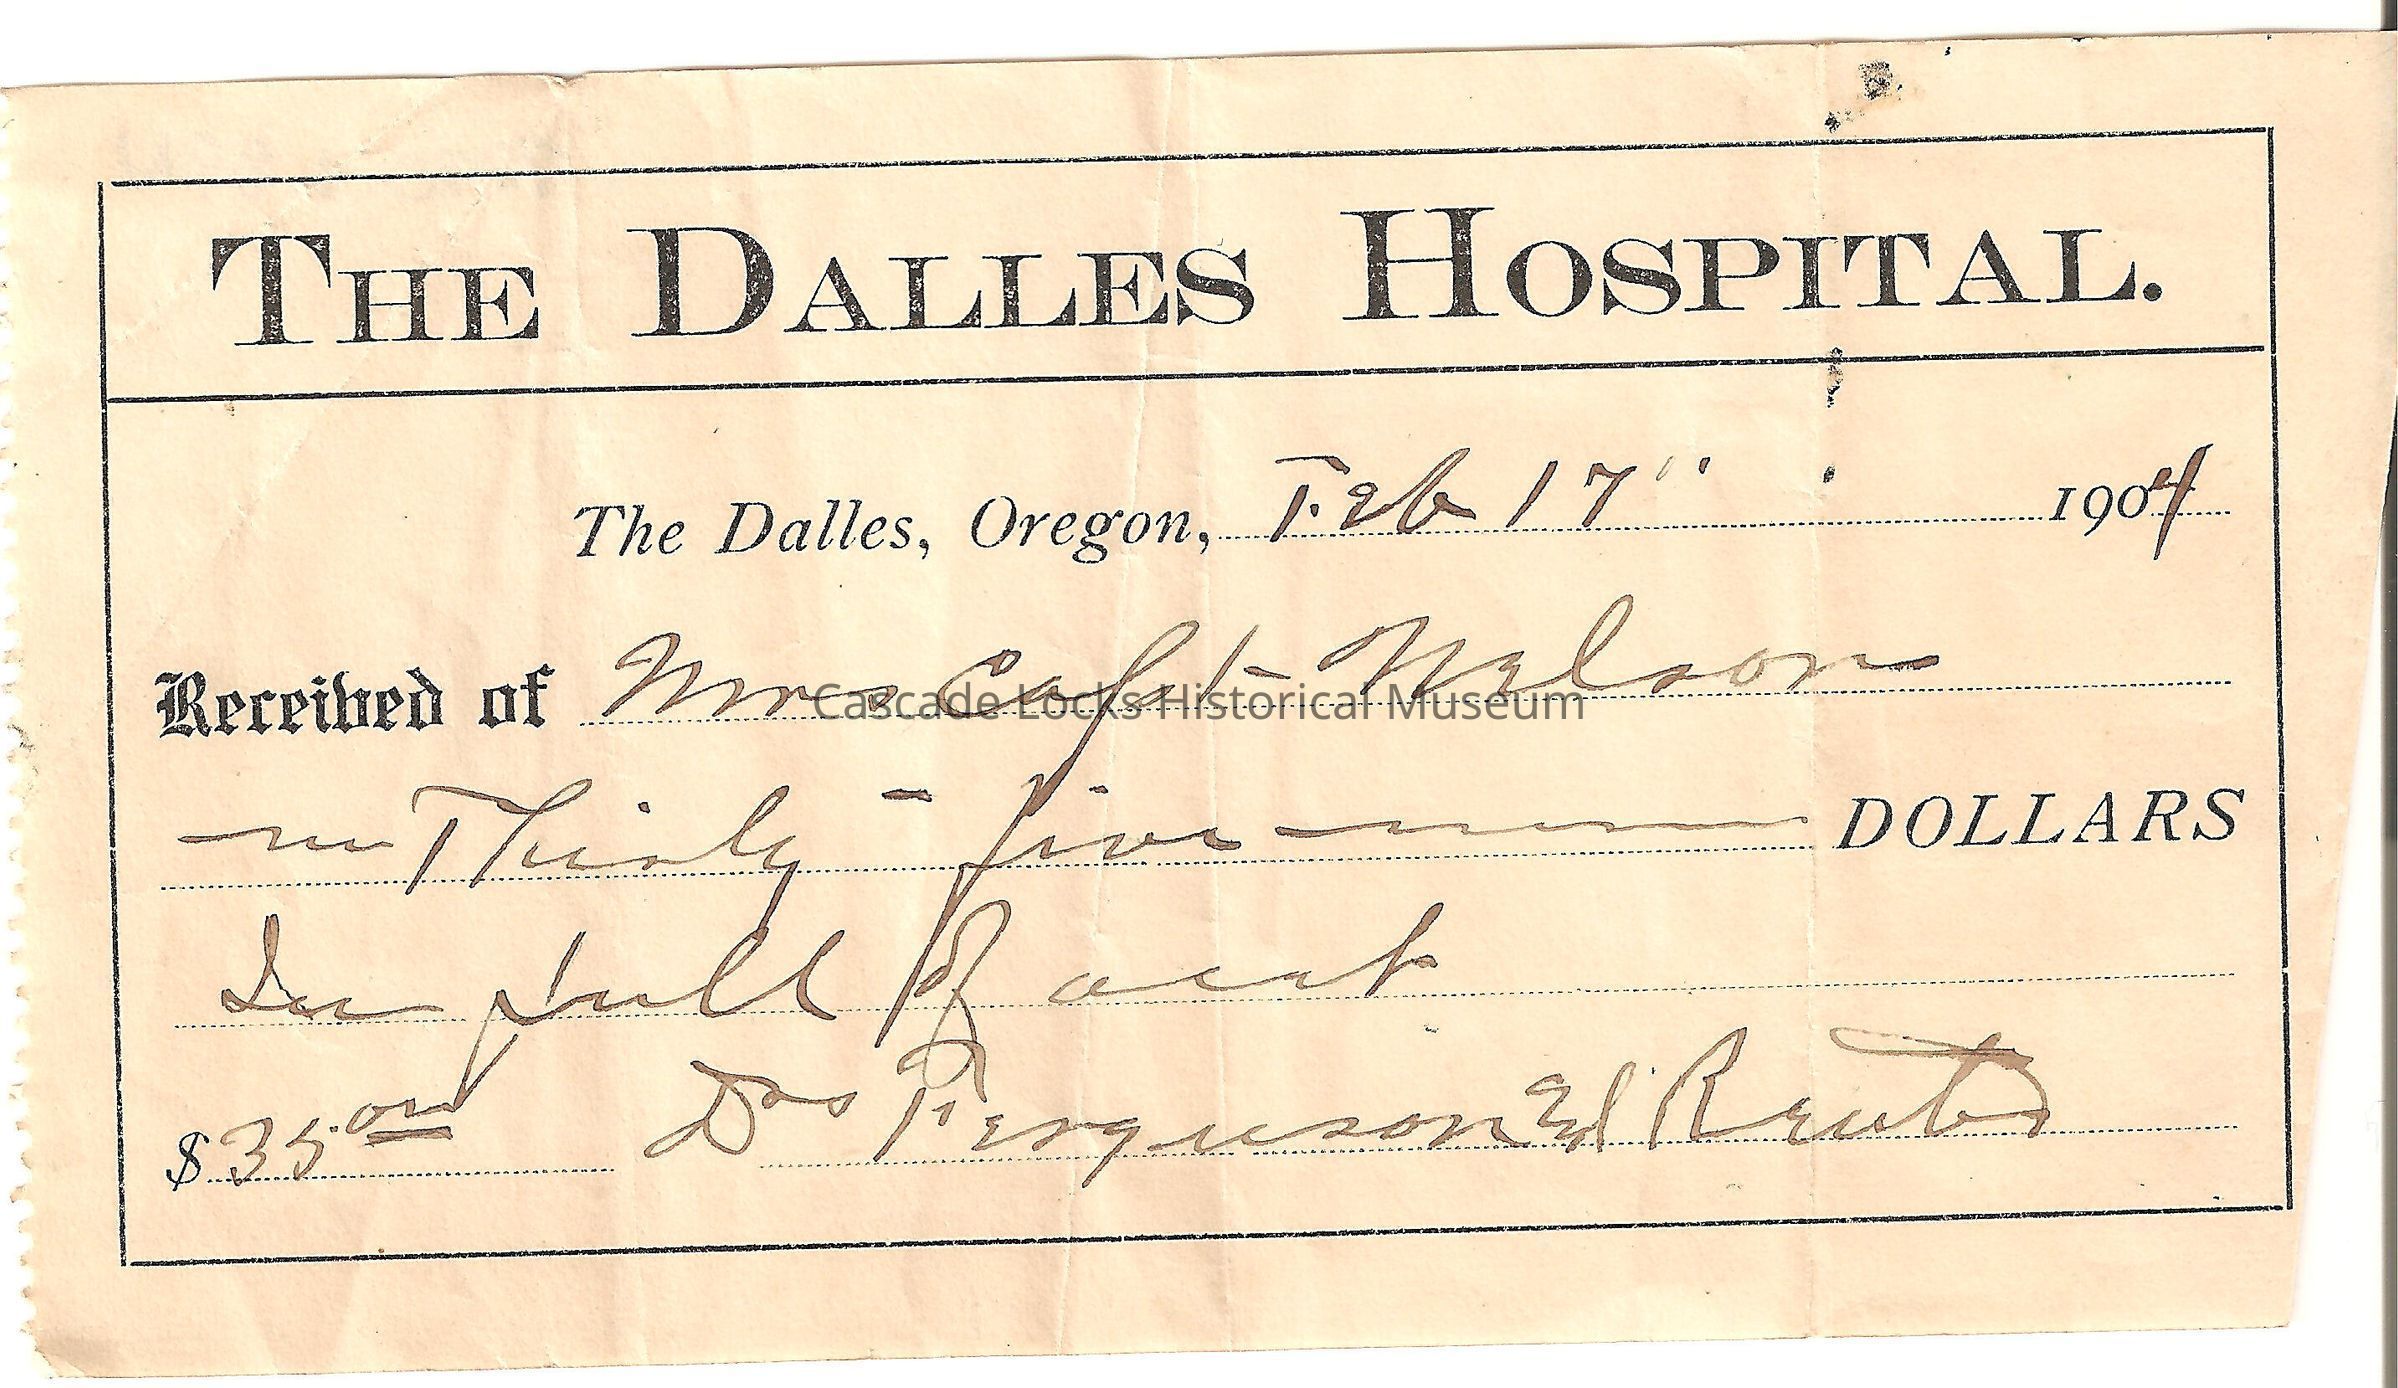 THE DALLES HOSPITAL.
The Dalles, Oregon, Feb 17" 1904
Received of Mrs Capt Nelson
Thirty-five DOLLARS
In full of acct
$35 00 Drs Ferguson & Reuter
Cascade Locks Historical Museum